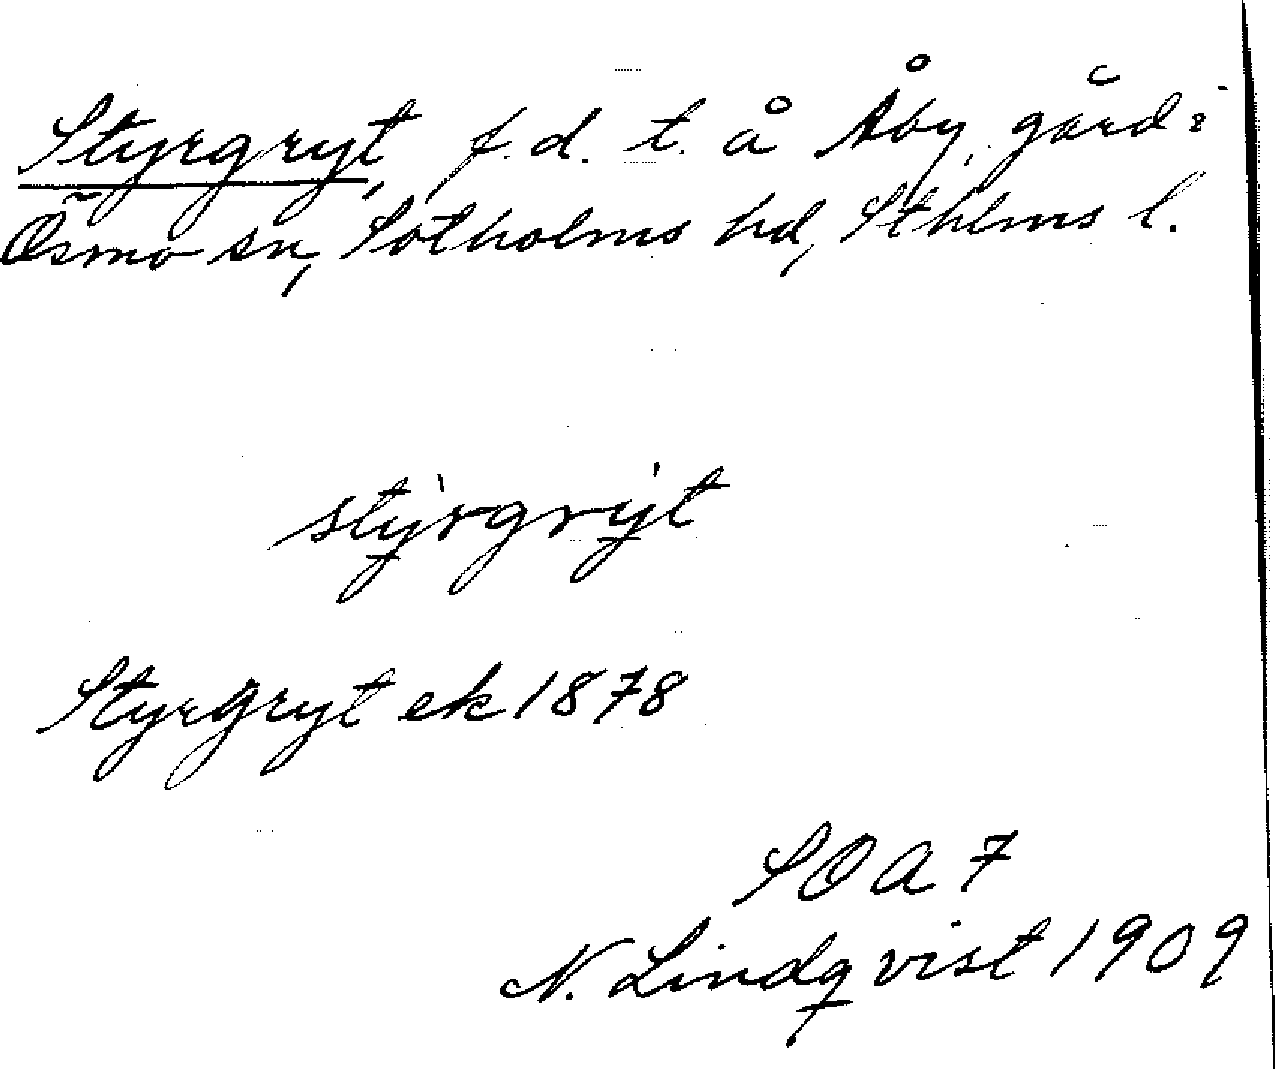 Styrgryt, f.d. t. å Åby, gård i
Ösmo sn, Sotholms hd, Sthlms l.
stýrgrýt
Styrgryt ek 1878
SOA 7
N. Lindqvist 1909